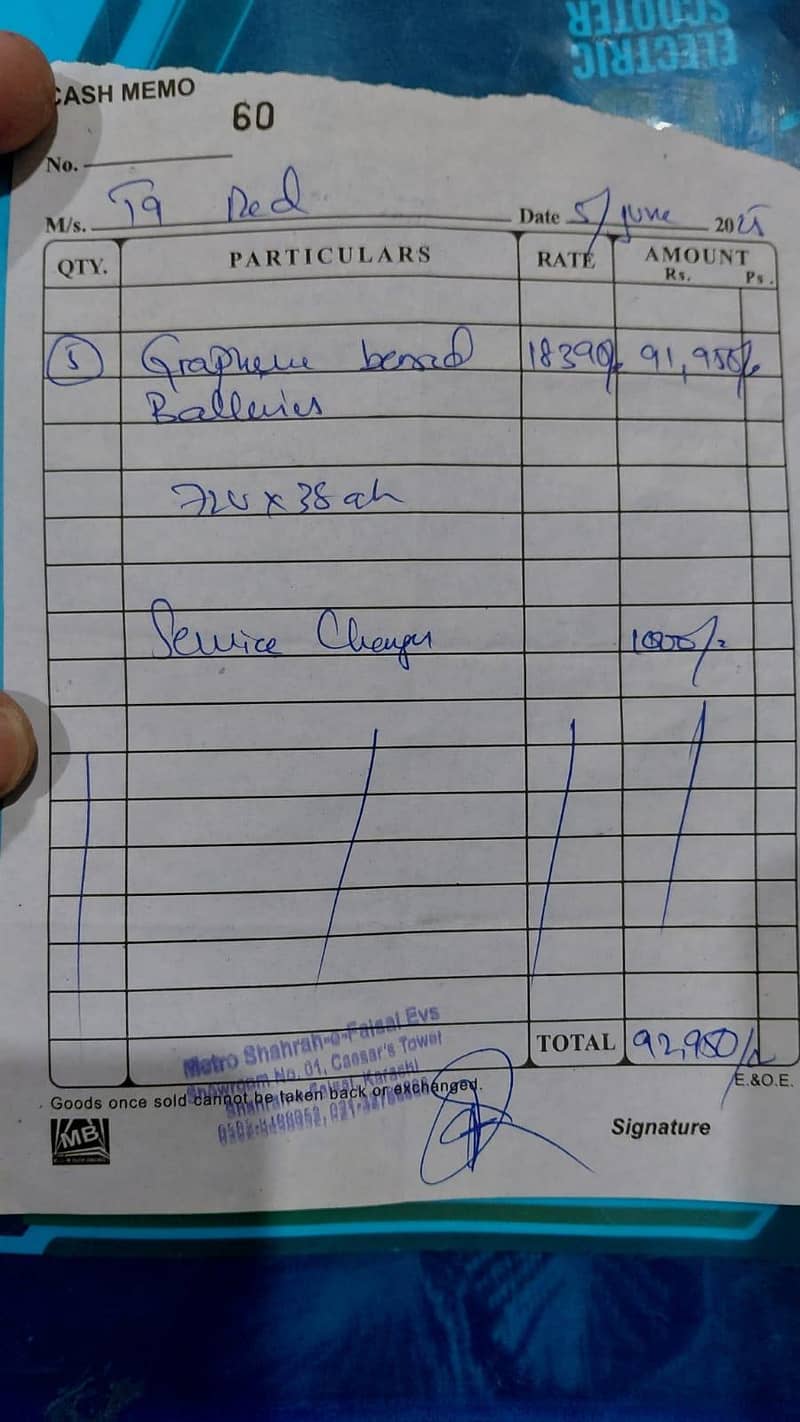 ELECTRIC
SCOOTER
CASH MEMO
60
No.
M/s. T9 Red Date 5/June 2025
QTY. PARTICULARS RATE AMOUNT
Rs. Ps.
5 Graphene bersed 18390/- 91,950/-
Batteries
72v x 38 ah
Service Charges 1000/-
TOTAL 92,950/-
Metro Shahrah-e-Faisal Evs
Showroom No. 01, Caesar's Tower
Shahrah-e-Faisal, Karachi
E.&O.E.
Goods once sold cannot be taken back or exchanged.
MB
Signature